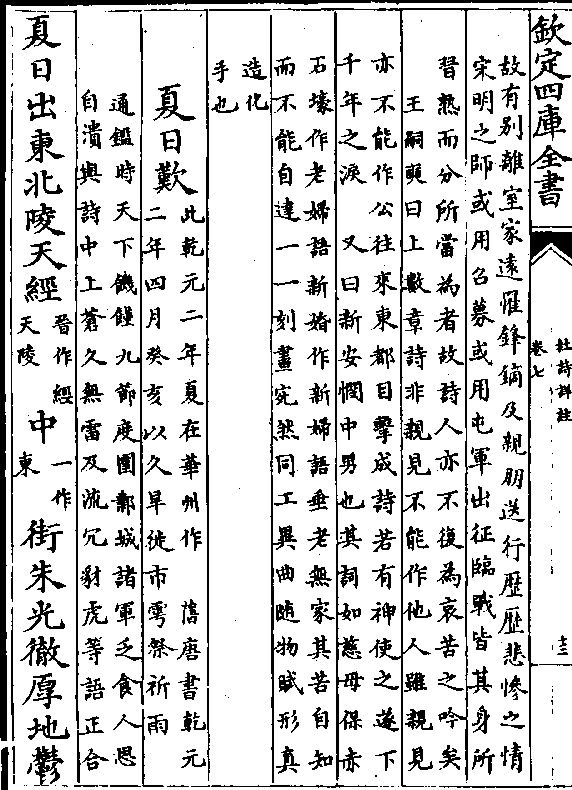 欽定四庫全書
杜詩詳註
卷七
十三
故有别離室家遠罹鋒鏑及親朋送行歴歴悲慘之情
宋明之師或用召募或用屯軍出征臨戰皆其身所
習熟而分所當為者故詩人亦不復為哀苦之吟矣
王嗣奭曰上數章詩非親見不能作他人雖親見
亦不能作公往來東都目擊成詩若有神使之遂下
千年之淚 又曰新安憫中男也其詞如慈母保赤
石壕作老婦語新婚作新婦語垂老無家其苦自知
而不能自達一一刻畫宛然同工異曲随物賦形真
造化
手也
夏日歎 此乾元二年夏在華州作 舊唐書乾元
二年四月癸亥以久旱徙市雩祭祈雨
通鑑時天下饑饉九節度圍鄴城諸軍乏食人思
自潰與詩中上蒼久無雷及流冗豺虎等語正合
夏日出東北陵天經 晉作經天陵 中 一作東 街朱光徹厚地鬱